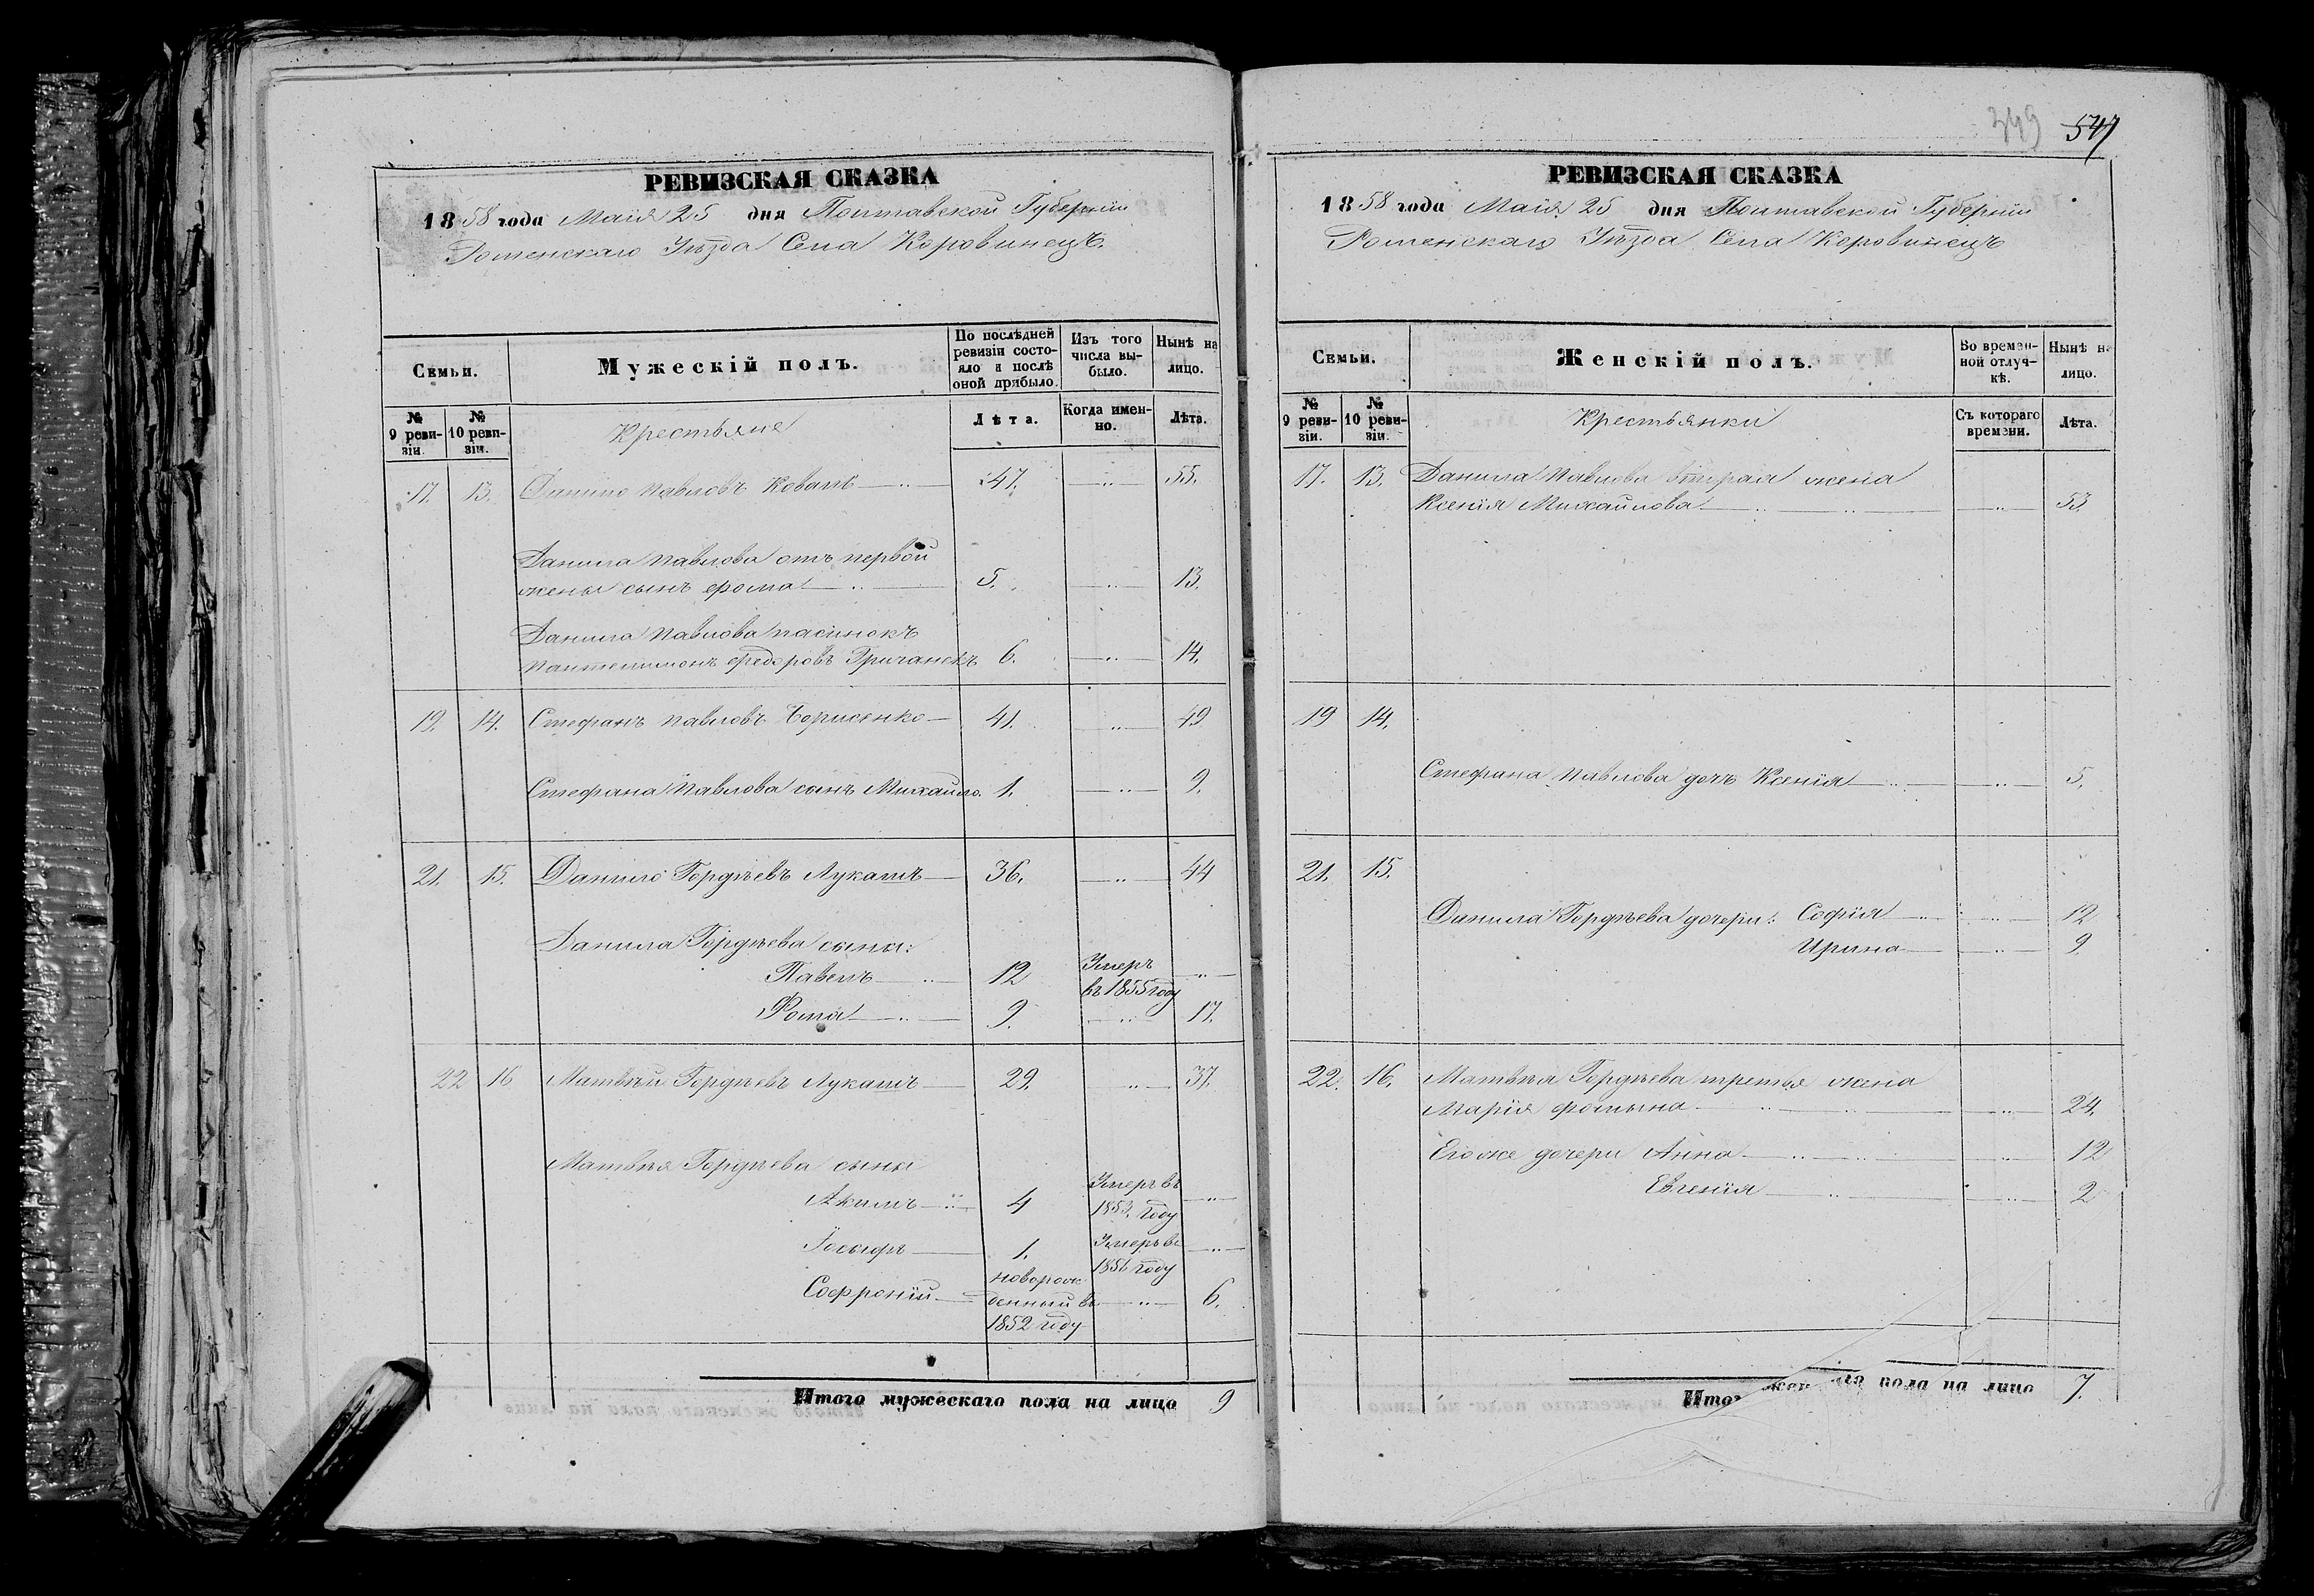 349 547
РЕВИЗСКАЯ СКАЗКА
1858 года Маія 25 дня Полтавской Губерніи
Роменскаго Уѣзда Села Коровинецъ.
Семьи.
Мужескій полъ.
По послѣдней ревизіи состояло и послѣ оной прибыло.
Изъ того числа выбыло.
Нынѣ на лицо.
№ 9 ревизіи.
№ 10 ревизіи.
Крестьяне
Лѣта.
Когда именно.
Лѣта.
17. 13. Данило Павловъ Коваль 47. 55.
Данила Павлова отъ первой
жены сынъ Фома 5. 13.
Данила Павлова пасинокъ
Пантелимонъ Федоровъ 6. 14.
19. 14. Стефанъ Павловъ Борисенко 41. 49
Стефана Павлова сынъ Михайло. 1. 9.
21. 15. Данило Гордѣевъ Лукашъ 36. 44
Данила Гордѣева сыны:
Павелъ 12 Умеръ въ 1855 году
Фома 9. 17.
22 16 Матвѣй Гордѣевъ Лукашъ 29. 37.
Матвѣя Гордѣева сыны
Акимъ 4 Умеръ въ 1853. году
Іосифъ 1. Умеръ въ 1856 году
Софроній новорожденный въ 1852 году 6.
Итого мужескаго пола на лицо 9
РЕВИЗСКАЯ СКАЗКА
1858 года Маія 25 дня Полтавской Губерніи
Роменскаго Уѣзда Села Коровинецъ
Семьи.
Женскій полъ.
Во временной отлучкѣ.
Нынѣ на лицо.
№ 9 ревизіи.
№ 10 ревизіи.
Крестьянки
Съ котораго времени.
Лѣта.
17. 13. Данила Павлова вторая жена
Ксенія Михайлова 53
19 14.
Стефана Павлова дочь Ксенія 5.
21. 15.
Данила Гордѣева дочери: Софія 12
Ирина 9
22. 16. Матвѣя Гордѣева третья жена
Марія Фомина 24.
Его же дочери Анна 12
Евгенія 2
пола на лицо 7.